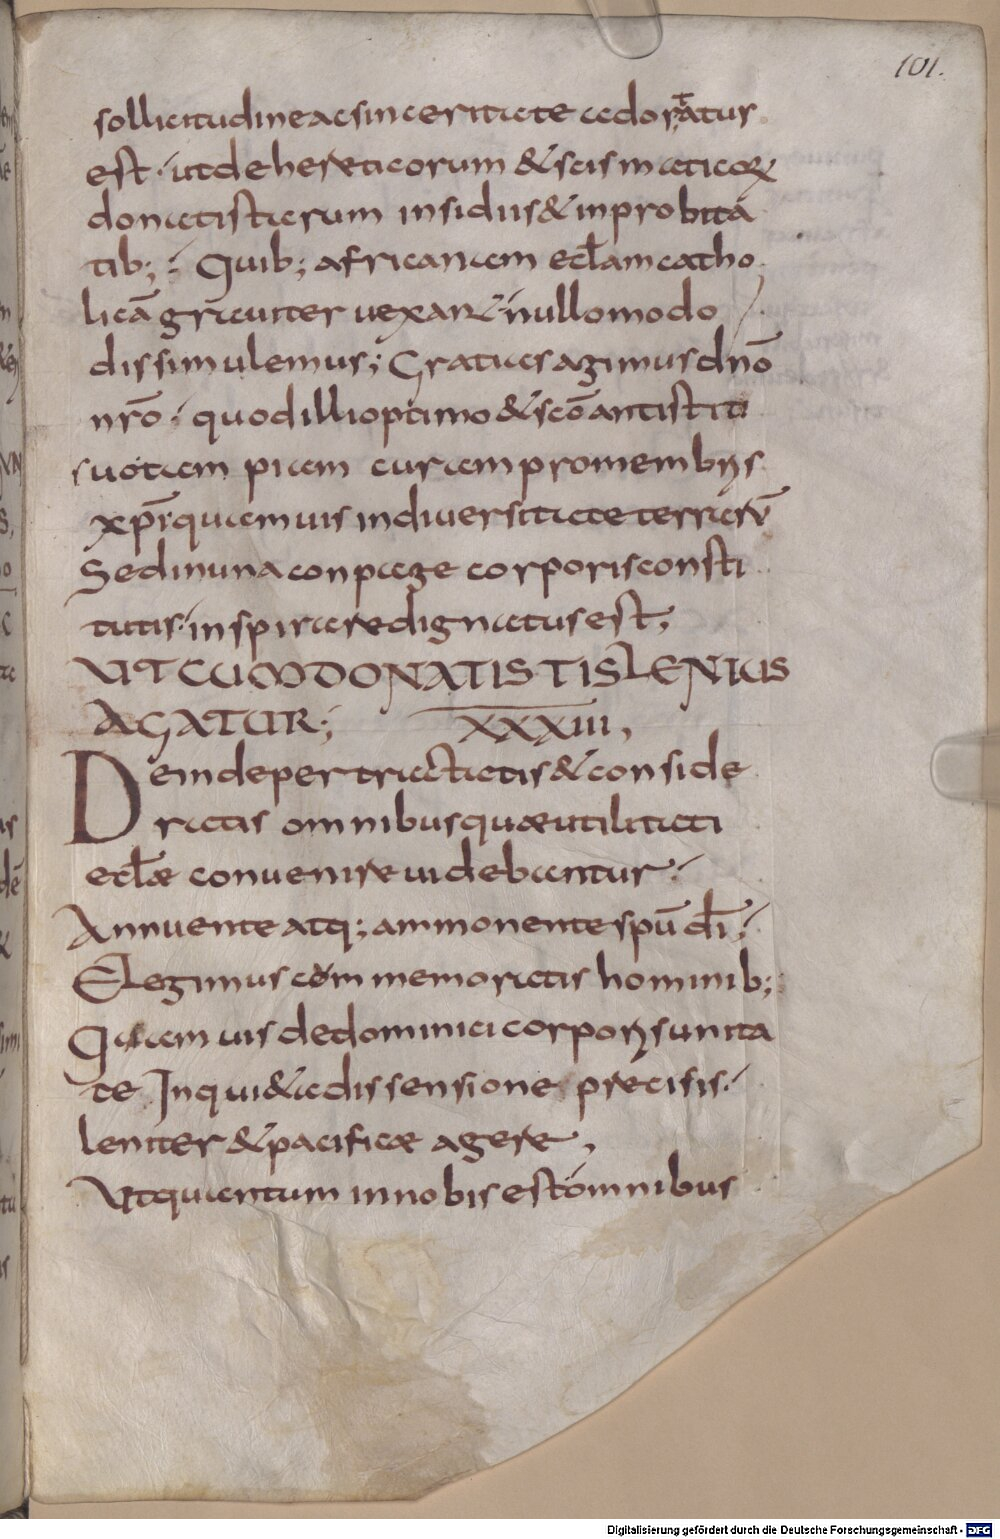 101.
sollicitudine ac sinceritate adoratus
est · ut de hereticorum & scismaticoꝝ
donatistarum insidiis & inprobita
tib; · Quib; africanam eclam catho
licā grauiter uexare · nullo modo
dissimulemus; Gratias agimus dnō
nrō · quod illi optimo & scō antistiti
suo tam piam curam pro membris
xpī quamuis in diuersitate terrarū
Sed in una conpage corporis consti
tutis · inspirare dignatus est;
UT CUM DONATISTIS LENIUS
AGATUR; XXXIII,
Deinde pertractatis & conside
ratis omnibus quæ utilitati
eclæ conuenire uidebantur ·
Annuente atq; ammonente spū dī;
Elegimus commemoratis hominib;
Quamuis de dominici corporis unita
te Inqui&a dissensione precisis ·
leniter & pacificæ agere,
Ut quantum in nobis est omnibus
Digitalisierung gefördert durch die Deutsche Forschungsgemeinschaft - DFG